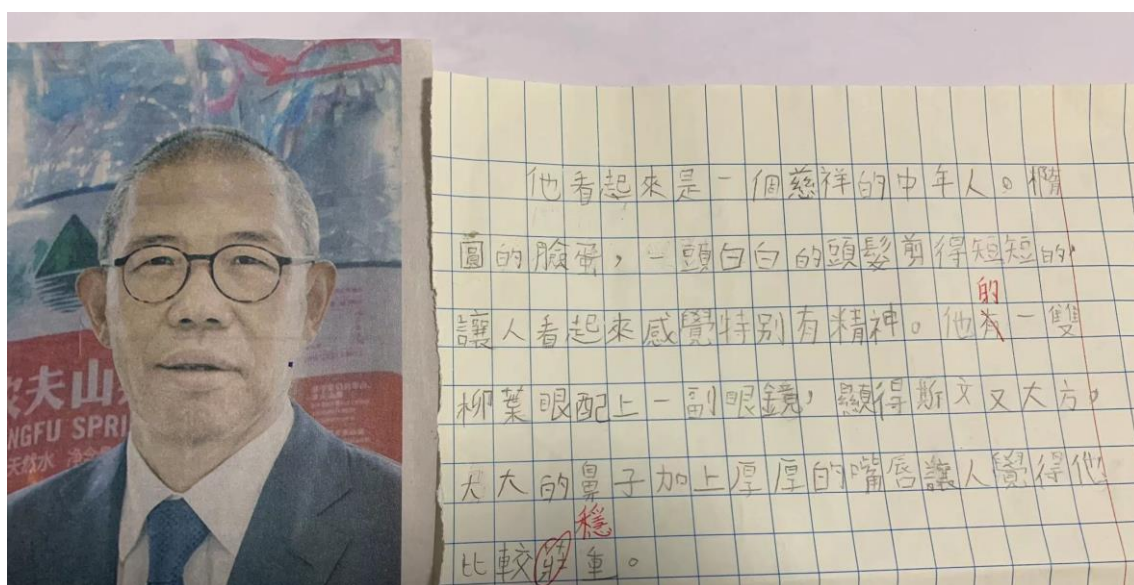 农夫山
NGFU SPRI
天然水
他看起來是一個慈祥的中年人。橢
圓的臉蛋，一頭白白的頭髮剪得短短的，
的
讓人看起來感覺特別有精神。他有一雙
柳葉眼配上一副眼鏡，顯得斯文又大方，
大大的鼻子加上厚厚的嘴唇讓人覺得他
穩
比較莊重。